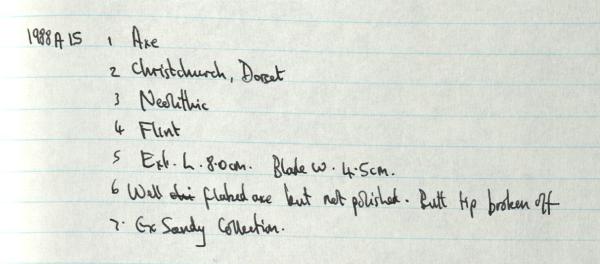 1988 A 15 1 Axe
2 Christchurch, Dorset
3 Neolithic
4 Flint
5 Ext. L. 8.0cm. Blade W. 4.5cm.
6 Well flaked axe but not polished. Butt tip broken off
7. Ex Sandy Collection.